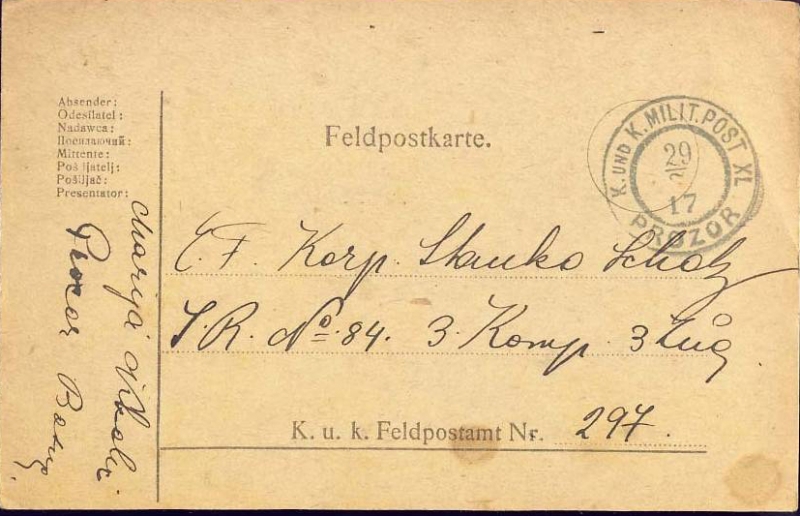 Absender:
Odesílatel:
Nadawca:
Посилаючий:
Mittente:
Pošiljatelj:
Pošiljač:
Presentator:
Marija
Prozor Bosnij
Feldpostkarte.
K. UND K. MILIT. POST XL
29
17
PROZOR
E. F. Korp. Stanko Scholz
I. R. No. 84. 3. Komp. 3 Zug
K. u. k. Feldpostamt Nr. 297.